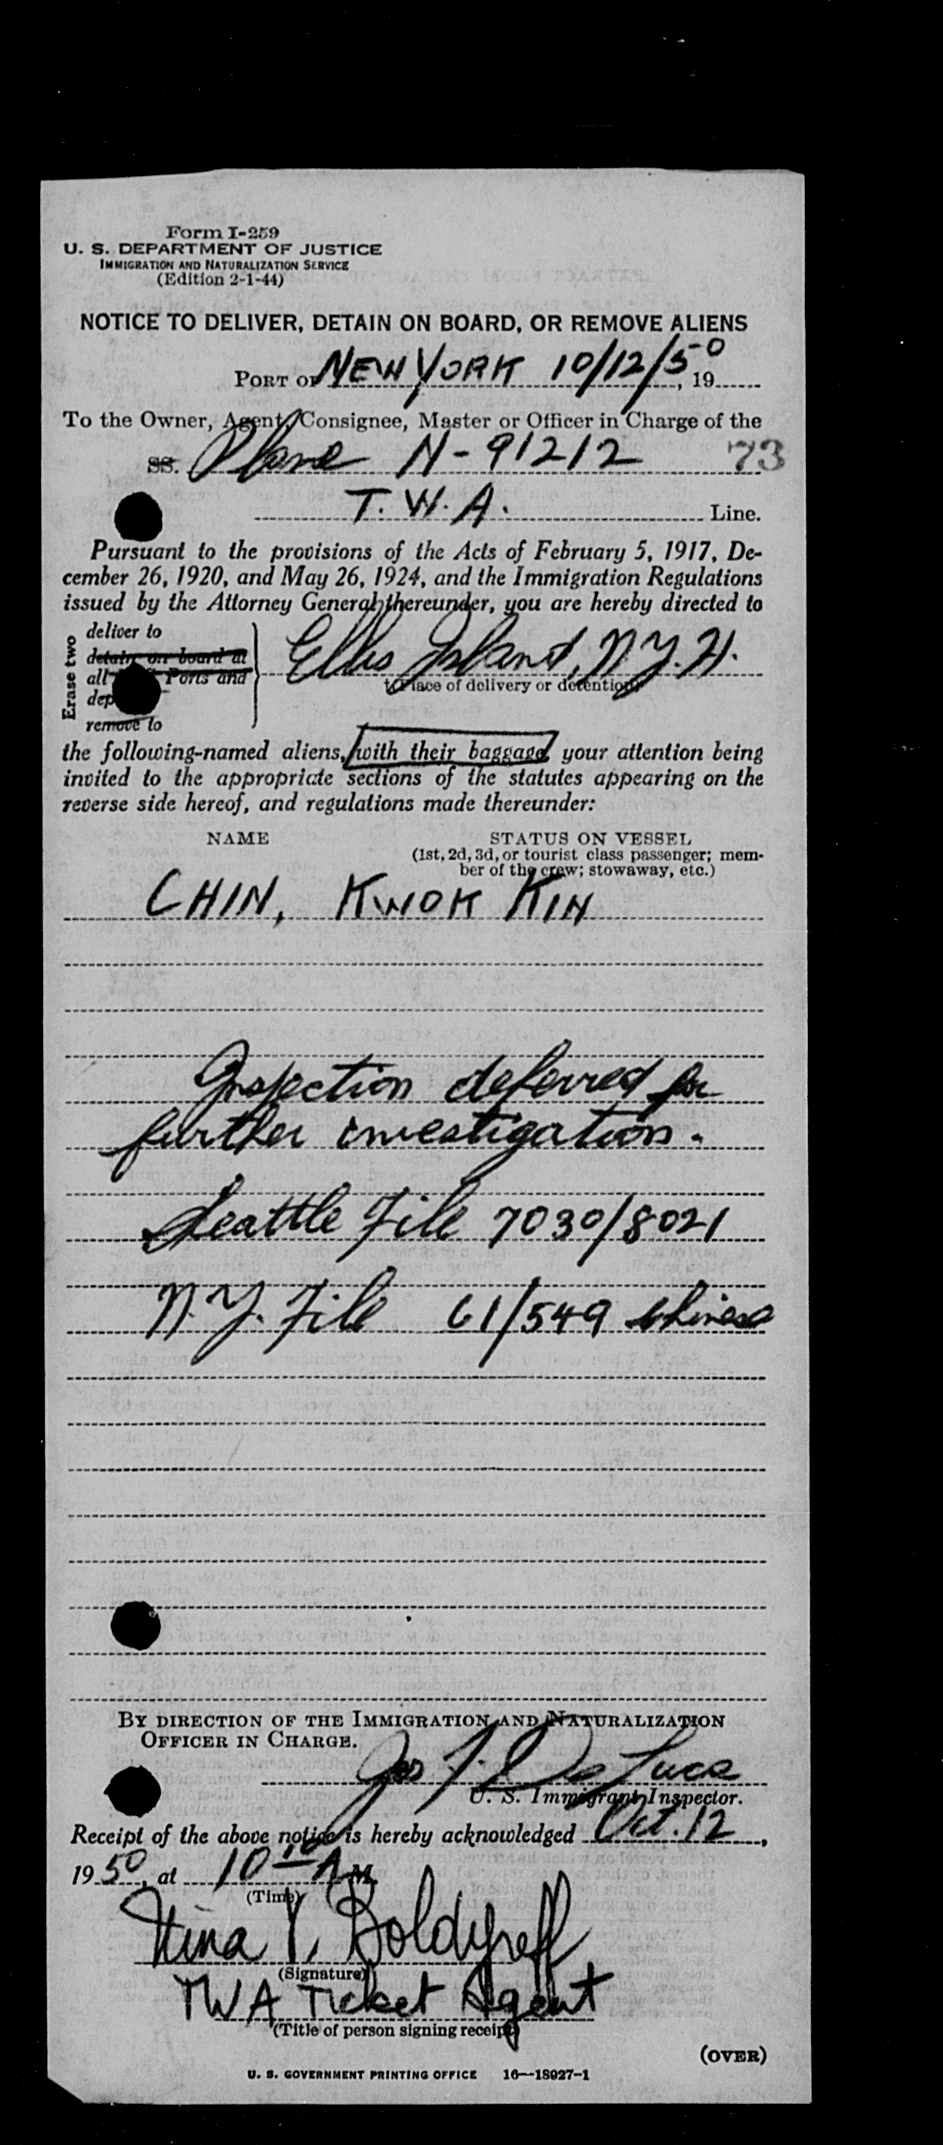 Form I-259
U. S. DEPARTMENT OF JUSTICE
IMMIGRATION AND NATURALIZATION SERVICE
(Edition 2-1-44)
NOTICE TO DELIVER, DETAIN ON BOARD, OR REMOVE ALIENS
PORT OF NEW YORK 10/12/50, 19
To the Owner, Agent, Consignee, Master or Officer in Charge of the
SS. Plane N-91212 73
T.W.A. Line.
Pursuant to the provisions of the Acts of February 5, 1917, De-
cember 26, 1920, and May 26, 1924, and the Immigration Regulations
issued by the Attorney General thereunder, you are hereby directed to
Erase two
deliver to
detain on board at
all Ports and
remove to
Ellis Island, N.Y.H.
(Place of delivery or detention)
the following-named aliens, with their baggage, your attention being
invited to the appropriate sections of the statutes appearing on the
reverse side hereof, and regulations made thereunder:
NAME STATUS ON VESSEL
(1st, 2d, 3d, or tourist class passenger; mem-
ber of the crew; stowaway, etc.)
CHIN, KWOK KIN
Inspection deferred for
further investigation.
Seattle File 7030/8021
N.Y. File 61/549 Chinese
BY DIRECTION OF THE IMMIGRATION AND NATURALIZATION
OFFICER IN CHARGE.
Jos F. De Luca
U. S. Immigrant Inspector.
Receipt of the above notice is hereby acknowledged Oct. 12,
1950, at 10 10 A M.
(Time)
Nina V. Boldyreff
(Signature)
TWA Ticket Agent
(Title of person signing receipt)
(OVER)
U. S. GOVERNMENT PRINTING OFFICE 16—18027-1